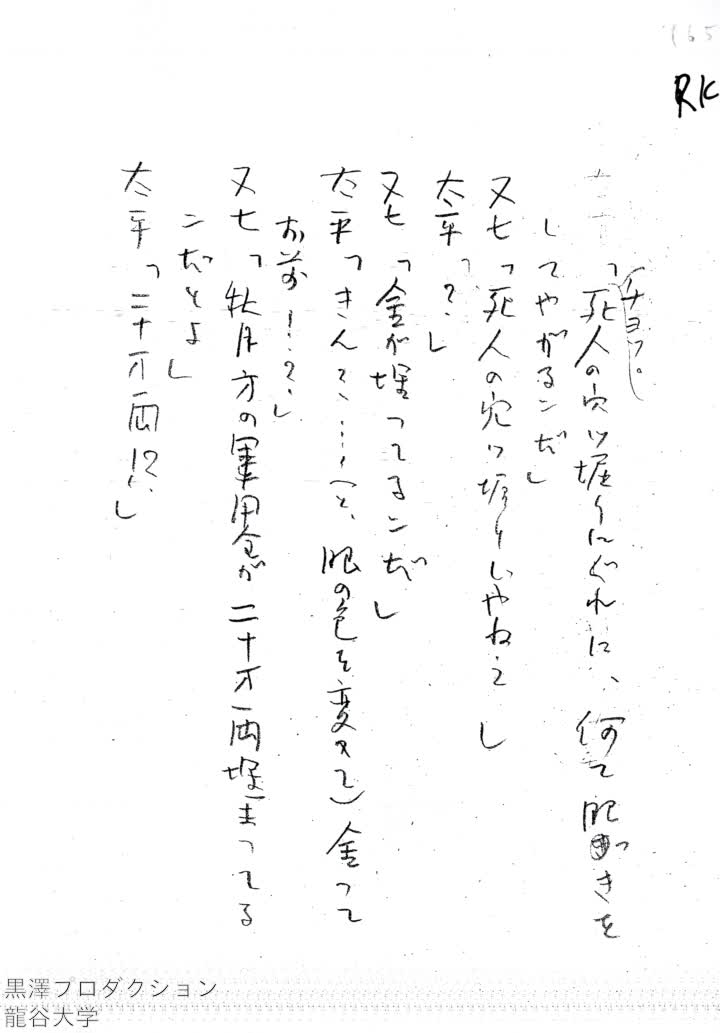 165
RK
チョッ。
「死人の穴ツ堀りにぐれに、何て眼つきを
してやがるンだ」
又七「死人の穴ツ堀りじやねえ」
太平「?」
又七「金が埋つてるンだ」
太平「きん?……(と、眼の色を変へて)金つて
お前!?」
又七「秋月方の軍用金が二十万両埋まつてる
ンだとよ」
太平「二十万両!?」
黒澤プロダクション
龍谷大学